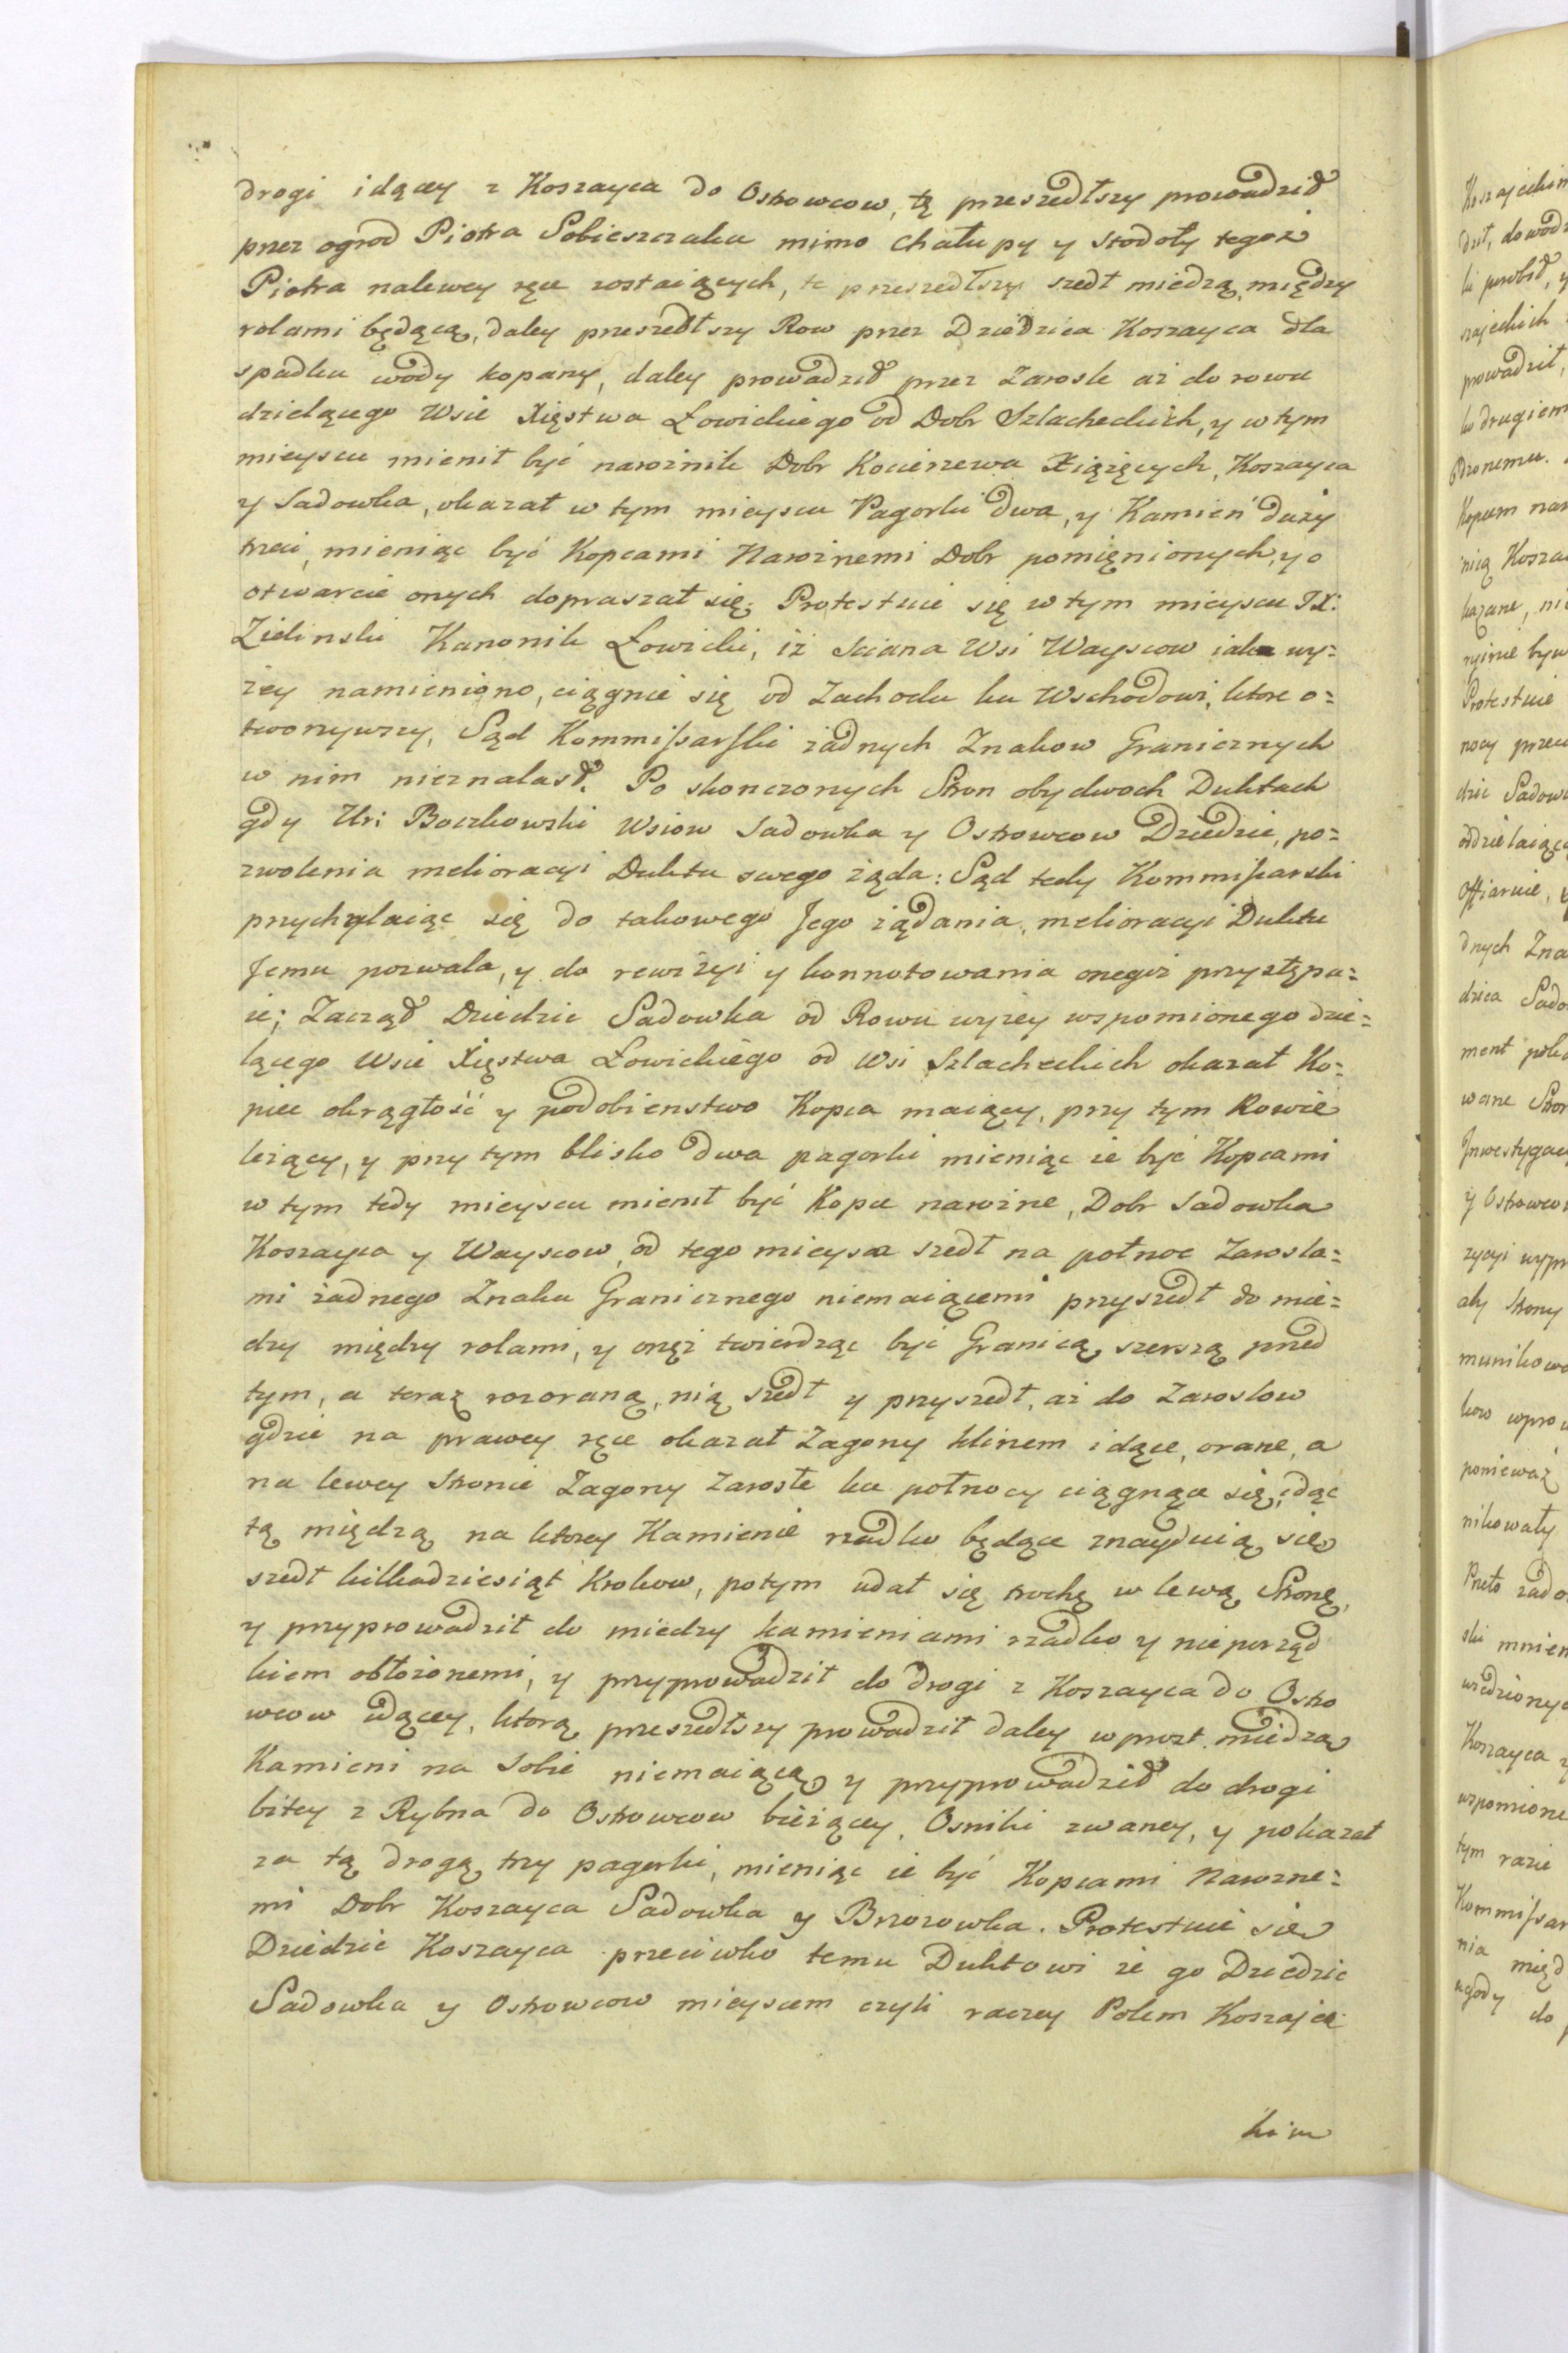 drogi idącey z Koszayca do Ostrowcow, tę przeszedłszy prowadził
przez ogrod Piotra Sobieszczaka mimo chałupy y stodoły tegoż
Piotra nalewey ręce zostaiących, te przeszedłszy szedł miedzą między
rolami będącą, daley przeszedłszy Row przez Dziedzica Koszayca dla
spadku wody kopany, daley prowadził przez Zarosle aż do rowu
dzielącego Wsie Xięstwa Łowickiego od Dobr Szlacheckich, y w tym
mieyscu mienił być narożnik Dobr Kocierzewa Xiążęcych, Koszayca
y Sadowka, okazał w tym mieyscu Pagorki dwa, y Kamień duży
trzeci, mieniąc być Kopcami Narożnemi Dobr pomięnionych, y o
otwarcie onych dopraszał się. Protestuie się w tym mieyscu JX:
Zielinski Kanonik Łowicki, iż sciana Wsi Wayscow iako wy=
żey namieniono, ciągnie się od Zachodu ku Wschodowi, ktore o=
tworzywszy, Sąd Kommissarski żadnych Znakow Granicznych
w nim nieznalasł. Po skonczonych Stron obydwoch Duktach
gdy Ur: Boczkowski Wsiow Sadowka y Ostrowcow Dziedzic, po=
zwolenia melioracyi Duktu swego żąda: Sąd tedy Kommissarski
przychylaiąc się do takowego Jego żądania, melioracyi Duktu
Jemu pozwala, y do rewizyi y konnotowania onegoż przystępu=
ie; Zaczął Dziedzic Sadowka od Rowu wyżey wspomionego dzie=
lącego Wsie Xięstwa Łowickiego od Wsi Szlacheckich okazał Ko=
piec okrągłość y podobienstwo Kopca maiący, przy tym Rowie
leżący, y przy tym blisko dwa pagorki mieniąc ie być Kopcami
w tym tedy mieyscu mienił być Kopce narożne, Dobr Sadowka
Koszayca y Wayscow, od tego mieysca szedł na połnoc Zarosla=
mi żadnego Znaku Granicznego niemaiącemi przyszedł do mie=
dzy między rolami, y onęż twierdząc być Granicą, szerszą przed
tym, a teraz rozoraną, nią szedł y przyszedł, aż do Zaroslow
gdzie na prawey ręce okazał Zagony klinem idące, orane, a
na lewey stronie Zagony Zarosłe ku połnocy ciągnące się, idąc
tą między na ktorey Kamienie rzadko będące znayduią się
szedł kilkadziesiąt Krokow, potym udał się trochę w lewą Stronę,
y przyprowadził do miedzy kamieniami rzadko y nieporząd
kiem obłożonemi, y przyprowadził do drogi z Koszayca do Ostro
wcow idącey, ktorą przeszedłszy prowadził daley wprost miedzą
Kamieni na sobie niemaiącą y przyprowadził do drogi
bitey z Rybna do Ostrowcow bieżącey, Osniki zwaney, y pokazał
za tą drogą trzy pagorki, mieniąc ie być Kopcami Narożne=
mi Dobr Koszayca Sadowka y Brzozowka. Protestuie się
Dziedzic Koszayca przeciwko temu Duktowi że go Dziedzic
Sadowka y Ostrowcow mieyscem czyli raczey Polem Koszajec
kim